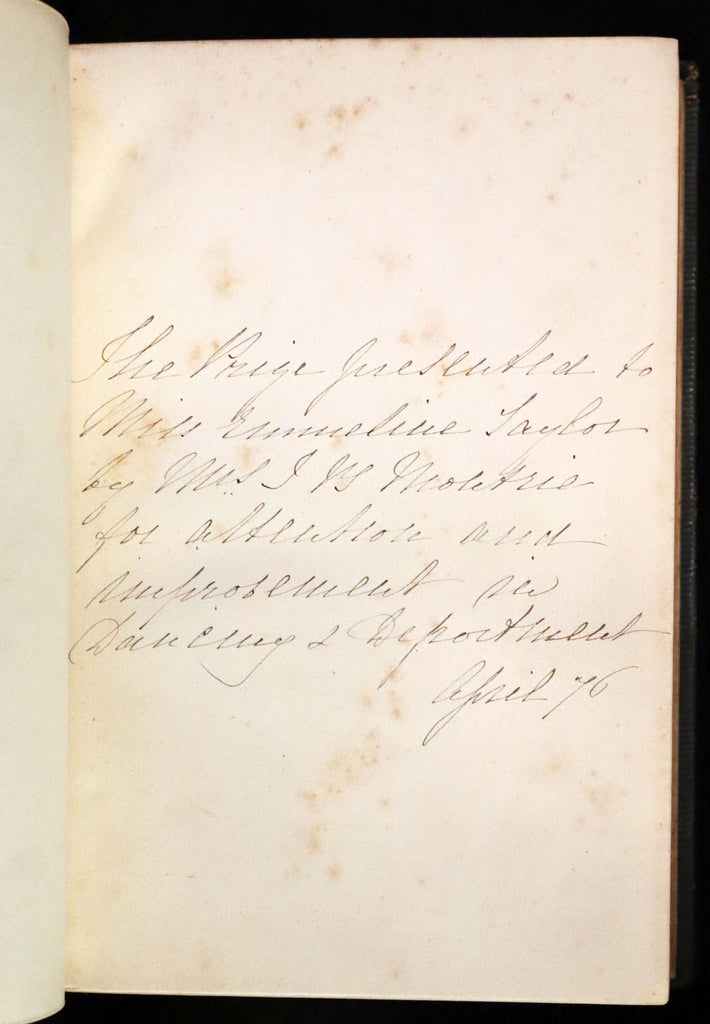 The Prize presented to
Miss Emmeline Taylor
by Mrs J B Moutrie
for attention and
improvement in
Dancing & Deportment
April 76